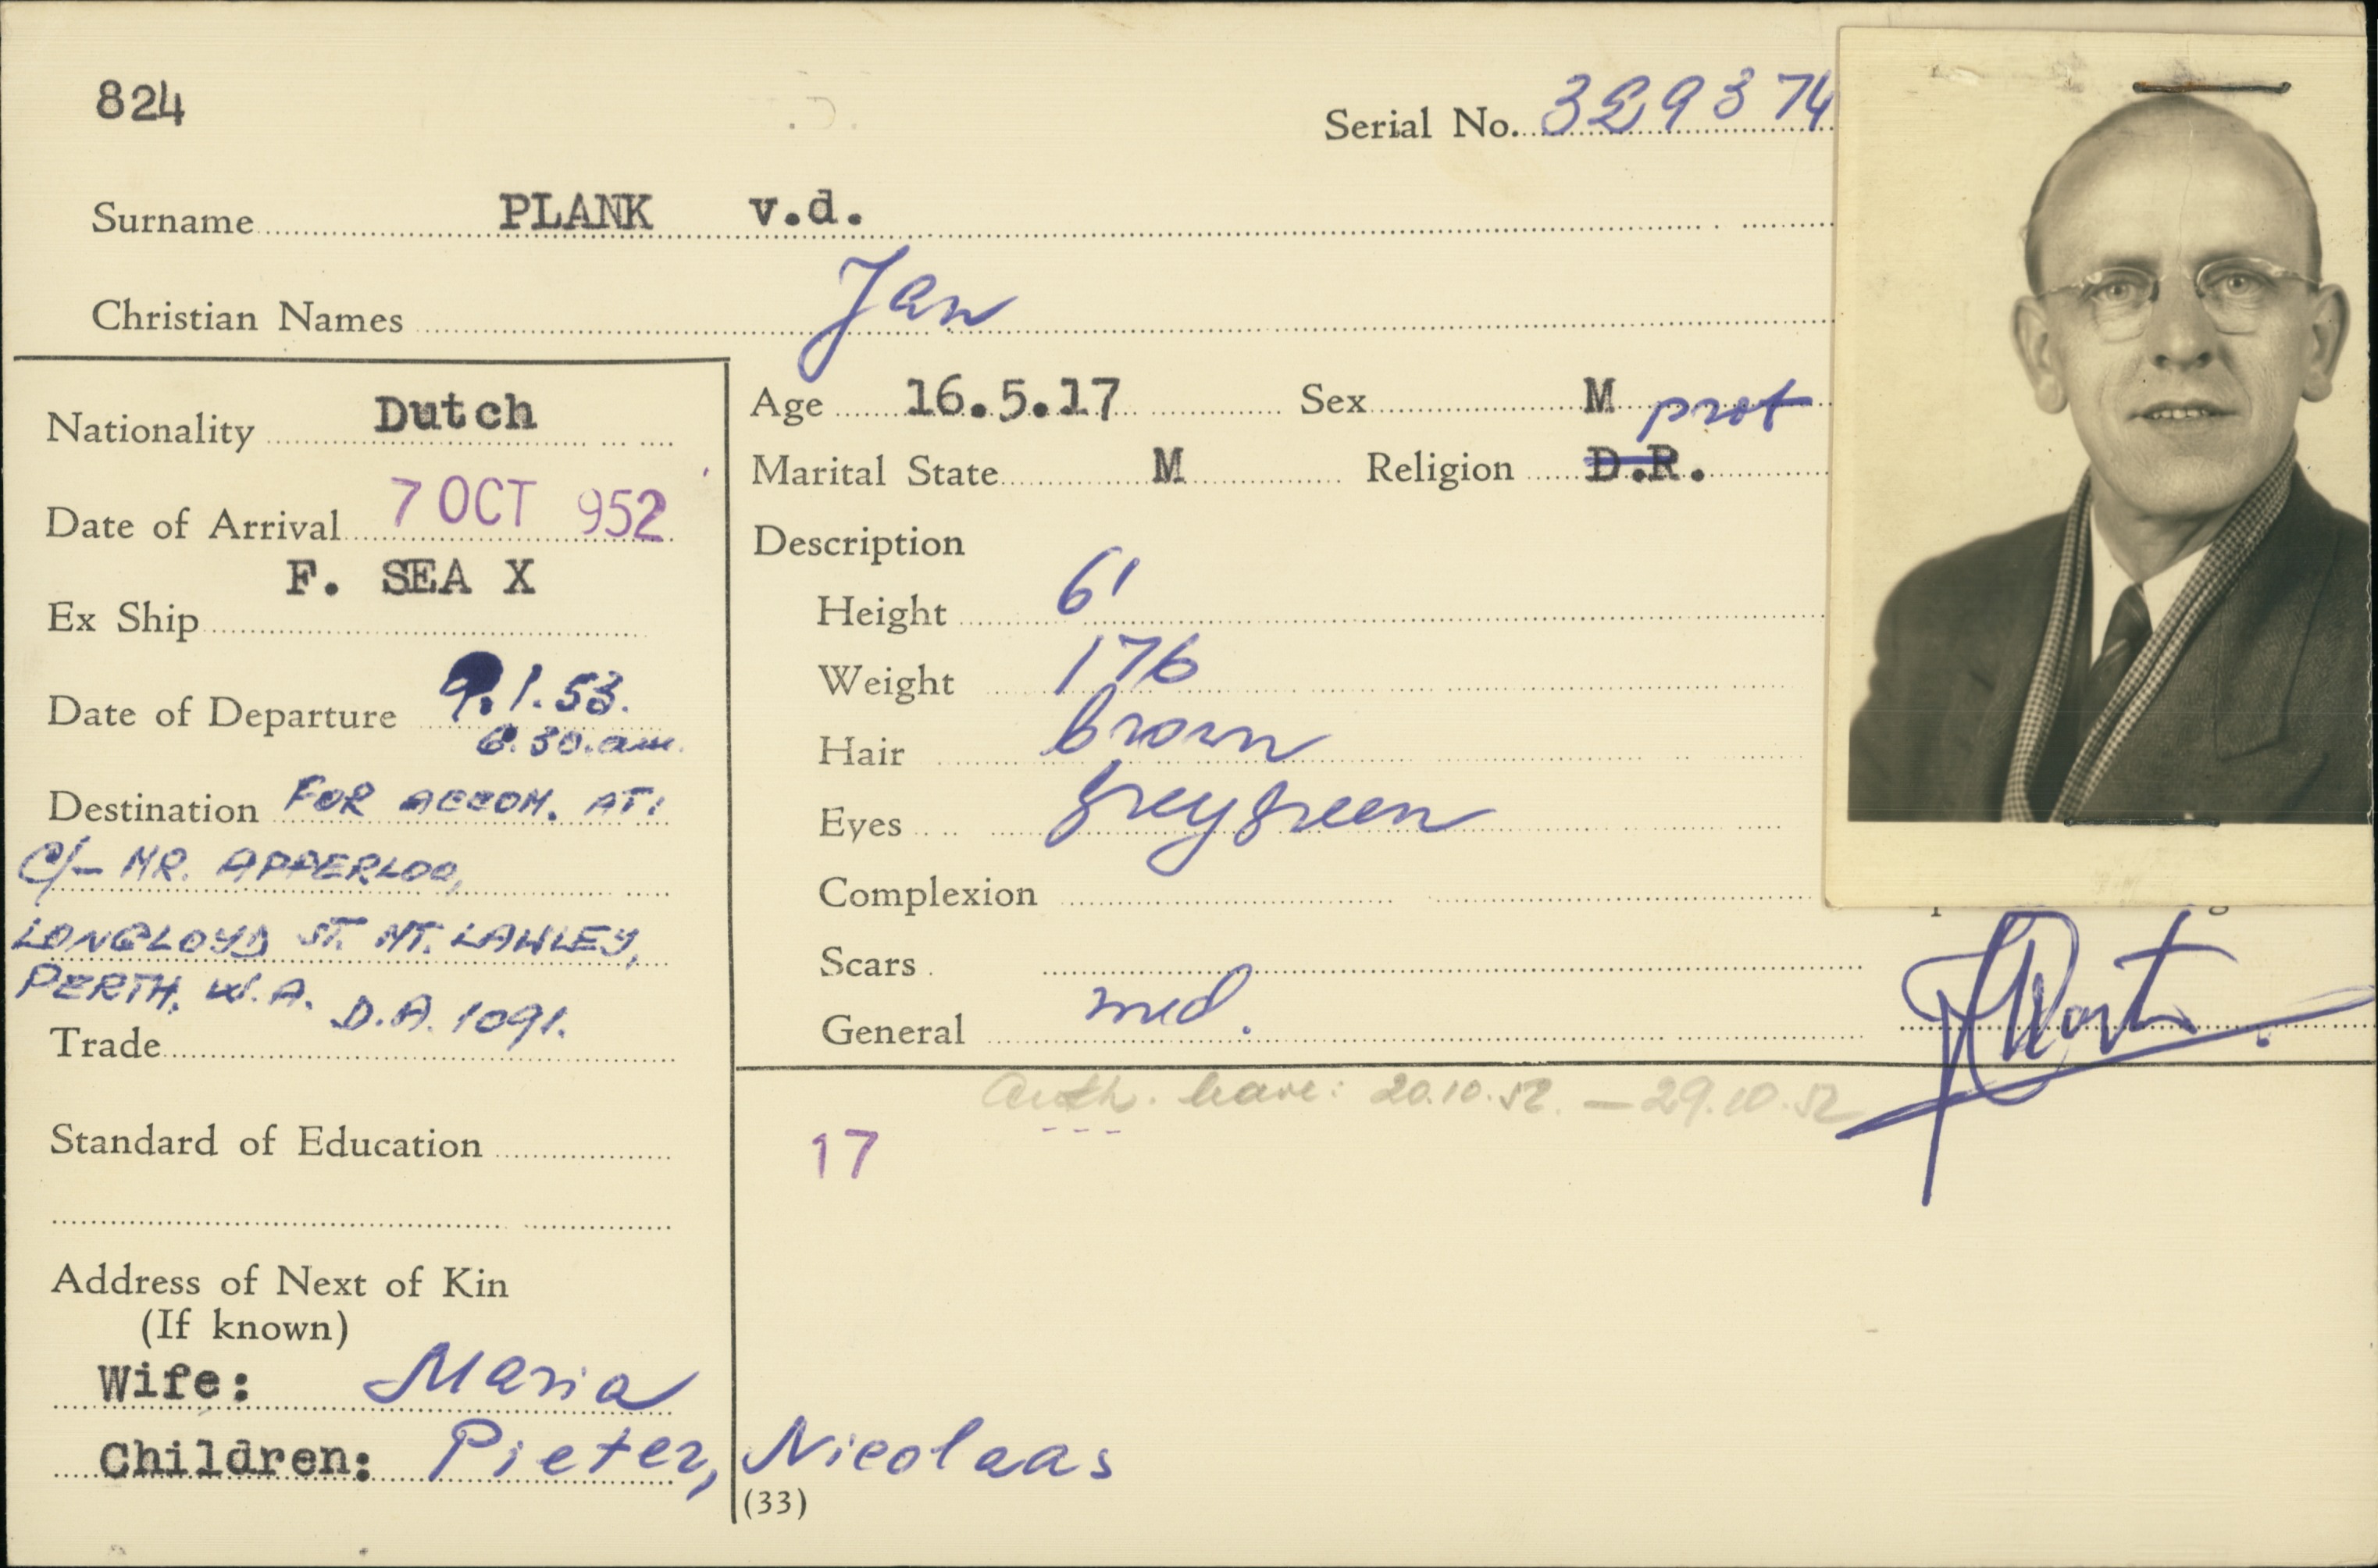 824
Serial No. 329374
Surname PLANK v.d.
Christian Names Jan
Nationality Dutch
Date of Arrival 7 OCT 952
F. SEA X
Ex Ship
Date of Departure 9.1.53.
6.30.am.
Destination FOR ACCOM. AT:
C/- MR. APPERLOO,
LONGLOYD ST. MT. LAWLEY,
PERTH, W.A. D.A. 1091.
Trade
Standard of Education
Address of Next of Kin
(If known)
Wife: Maria
Children: Pieter, Nicolaas
Age 16.5.17 Sex M
prot
Marital State M Religion D.R.
Description
Height 6'
Weight 176
Hair brown
Eyes grey green
Complexion
Scars
General med.
Auth. leave: 20.10.52. — 29.10.52
17
(33)